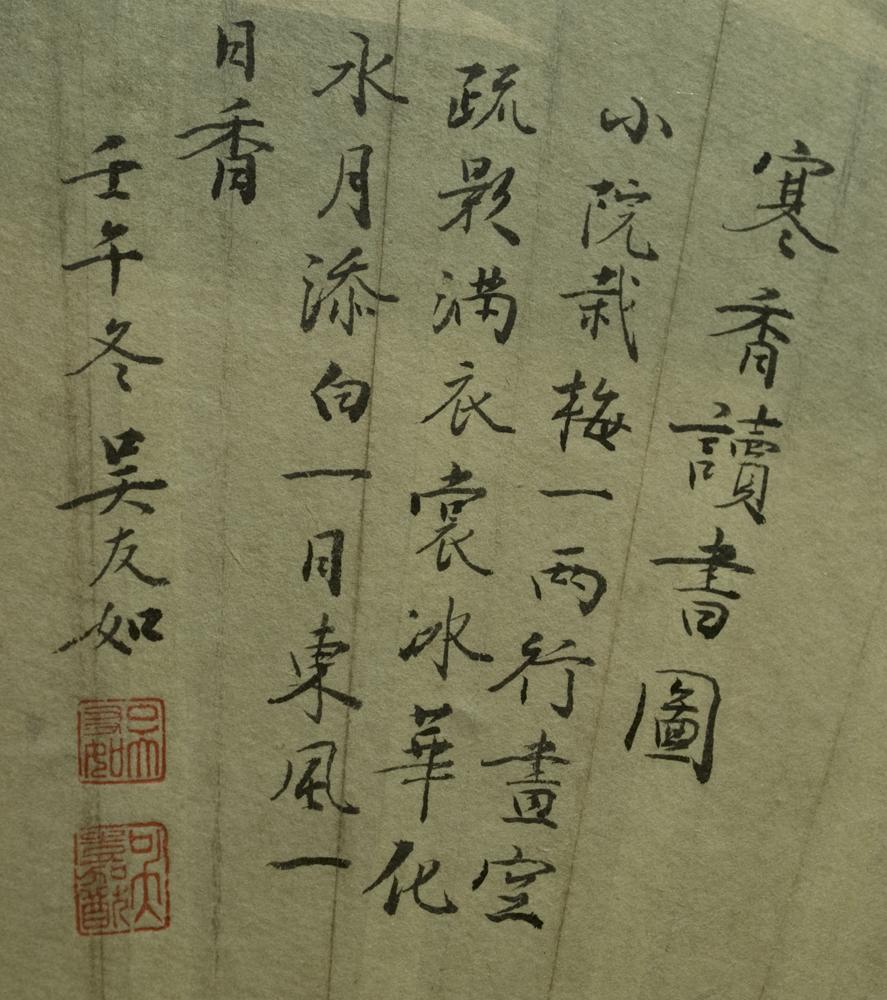 寒香讀書圖
小院栽梅一兩行畫空
疏影滿衣裳冰華化
水月添白一日東風一
日香
壬午冬吳友如
吳友如